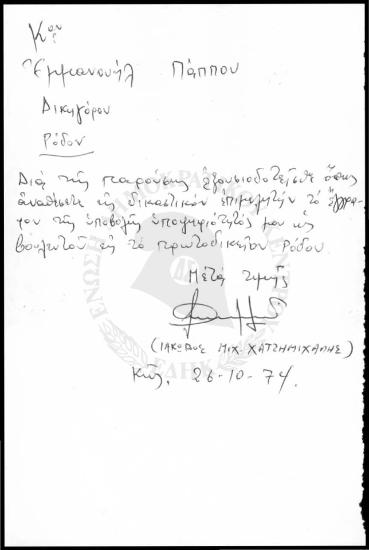 Κον
Ἐμμανουήλ Πάππου
Δικηγόρον
Ρόδον
Διά τῆς παρούσης ἐξουσιοδοτεῖσθε ὅπως
ἀναθέσετε εἰς δικαστικόν ἐπιμελητήν τό ἔγγρα-
φον τῆς ὑποβολῆς ὑποψηφιότητός μου ὡς
βουλευτοῦ εἰς τό πρωτοδικεῖον Ρόδου
Μετά τιμῆς
(ΙΑΚΩΒΟΣ ΜΙΧ. ΧΑΤΖΗΜΙΧΑΛΗΣ)
Κῶς, 26-10-74.